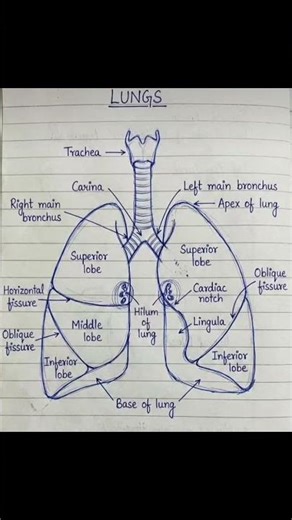 LUNGS
Trachea
Carina
Left main bronchus
Right main
bronchus
Apex of lung
Superior
lobe
Superior
lobe
Oblique
fissure
Horizontal
fissure
Cardiac
notch
Hilum
of
lung
Lingula
Middle
lobe
Oblique
fissure
Inferior
lobe
Inferior
lobe
Base of lung